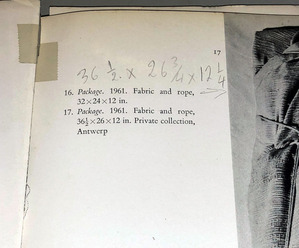 17
36 1/2 × 26 3/4 × 12 1/4
16. Package. 1961. Fabric and rope,
32×24×12 in.
17. Package. 1961. Fabric and rope,
36½×26×12 in. Private collection,
Antwerp